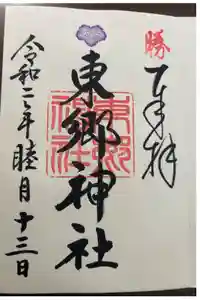 勝
奉拝
東郷神社
東郷神社
令和二年睦月十三日